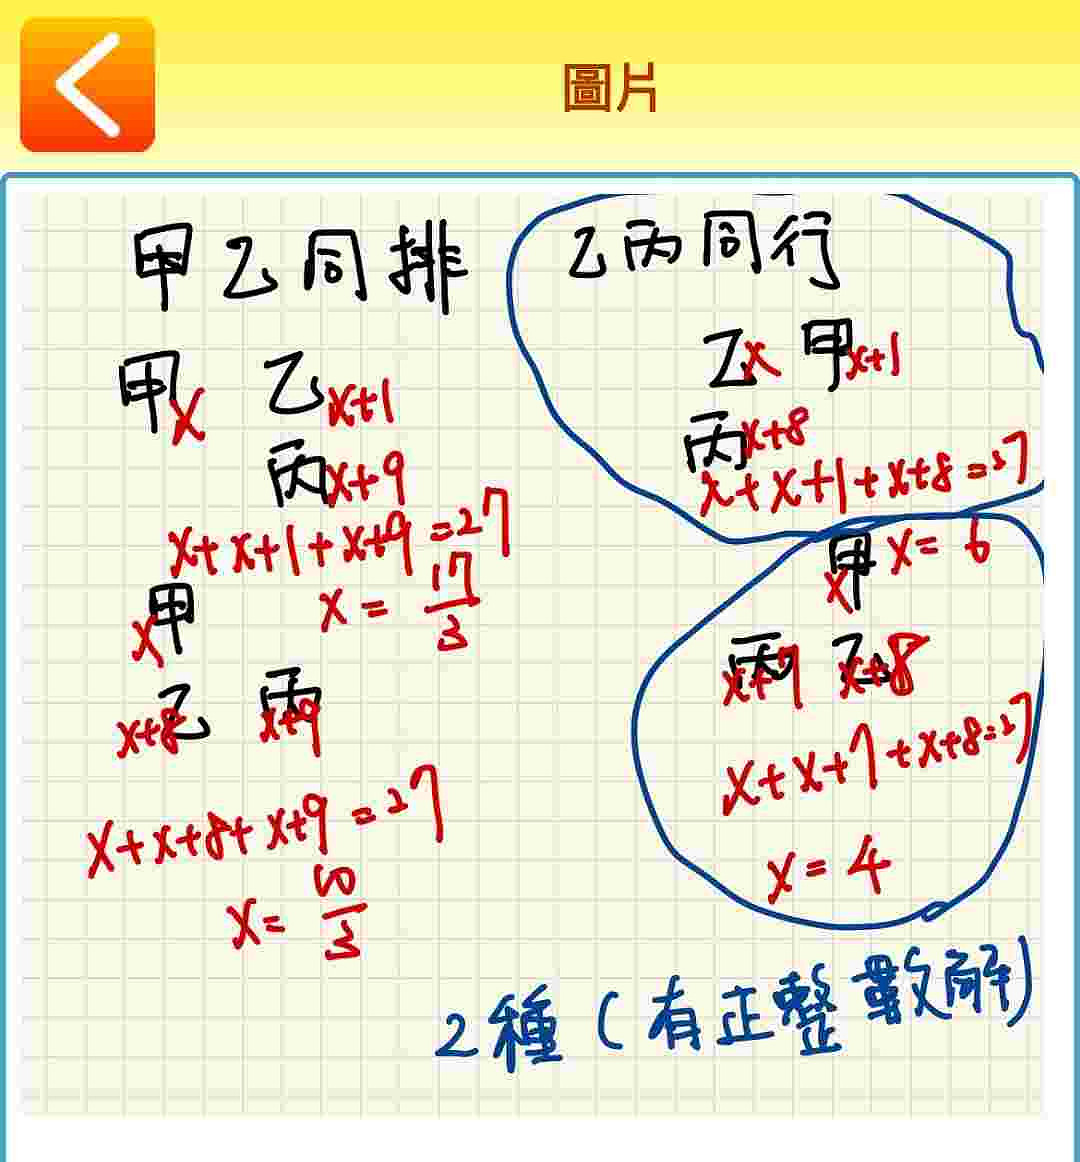 圖片
甲乙同排
甲x 乙x+1
丙x+9
x+x+1+x+9=27
x=17/3
甲x
乙x+8 丙x+9
x+x+8+x+9=27
x=10/3
乙丙同行
乙x 甲x+1
丙x+8
x+x+1+x+8=27
x=6
甲x
丙x+7 乙x+8
x+x+7+x+8=27
x=4
2種(有正整數解)